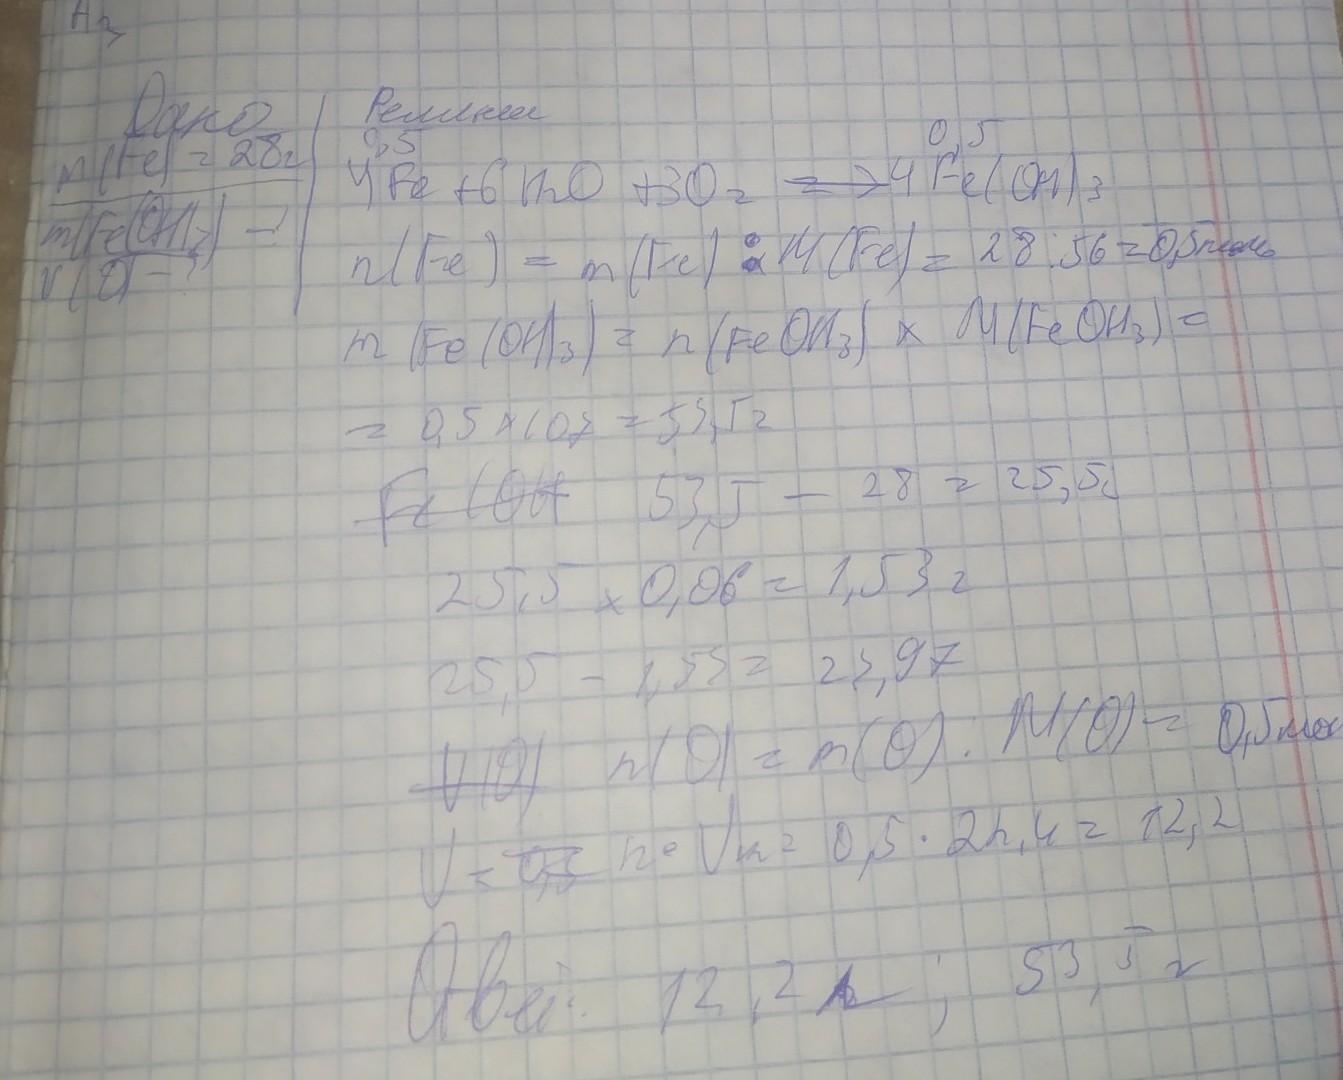 Дано
Решение
m(Fe) = 28г
m(Fe(OH)3) - ?
V(O) - ?
0,5 0,5
4Fe + 6H2O + 3O2 => 4Fe(OH)3
n(Fe) = m(Fe) : M(Fe) = 28:56 = 0,5 моль
m(Fe(OH)3) = n(FeOH3) × M(FeOH3) =
= 0,5 × 107 = 53,5г
Fe(OH 53,5 - 28 = 25,5г
25,5 × 0,06 = 1,53г
25,5 - 1,53 = 23,97
V(O) n(O) = m(O) : M(O) = 0,5 мол
V = 0,5 n • Vm = 0,5 · 24,4 = 12,2
Ответ: 12,2 л ; 53,5 г